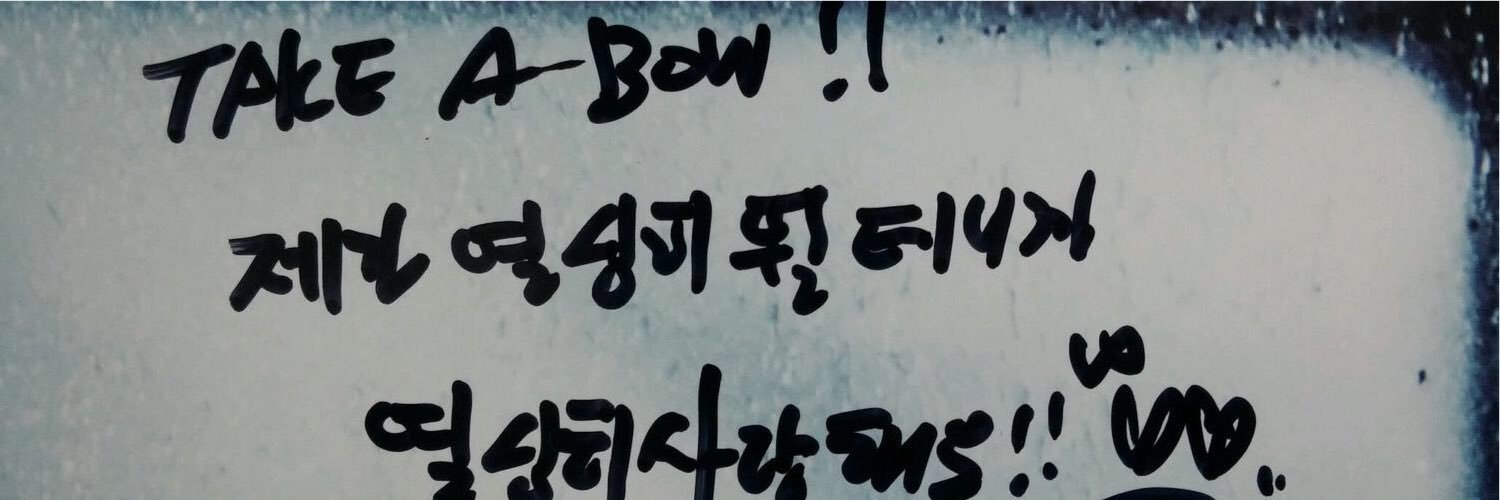 TAKE A BOW!!
제가 열심히 뛸 테니까
열심히 사랑해줘!!